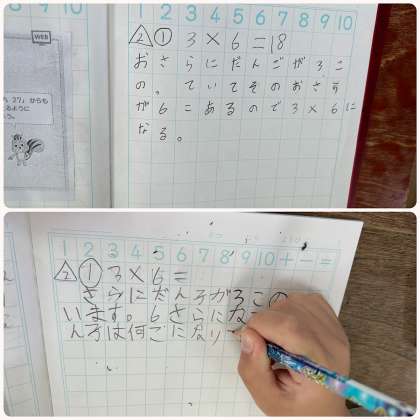 8 9 10
WEB
27」からも
1 2 3 4 5 6 7 8 9 10
△2 ① 3×6=18
おさらにだんごが3こ
の。ていてそのおさす
が6こあるので3×6に
なる。
1 2 3 4 5 6 7 8 9 10 + − =
△2 ① 3×6=
さらにだん子が3この
います。6さらになる
ん子は何こになり